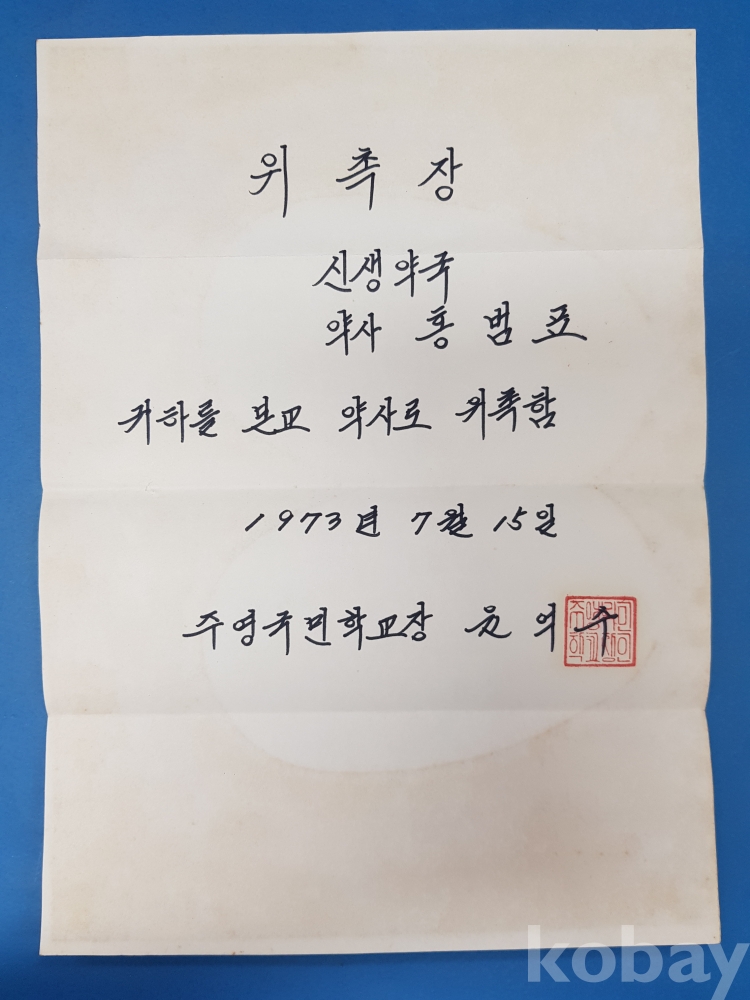 위 촉 장
신생약국
약사 홍 범 표
귀하를 본교 약사로 위촉함
1973년 7월 15일
주영국민학교장 윤 의 수
kobay